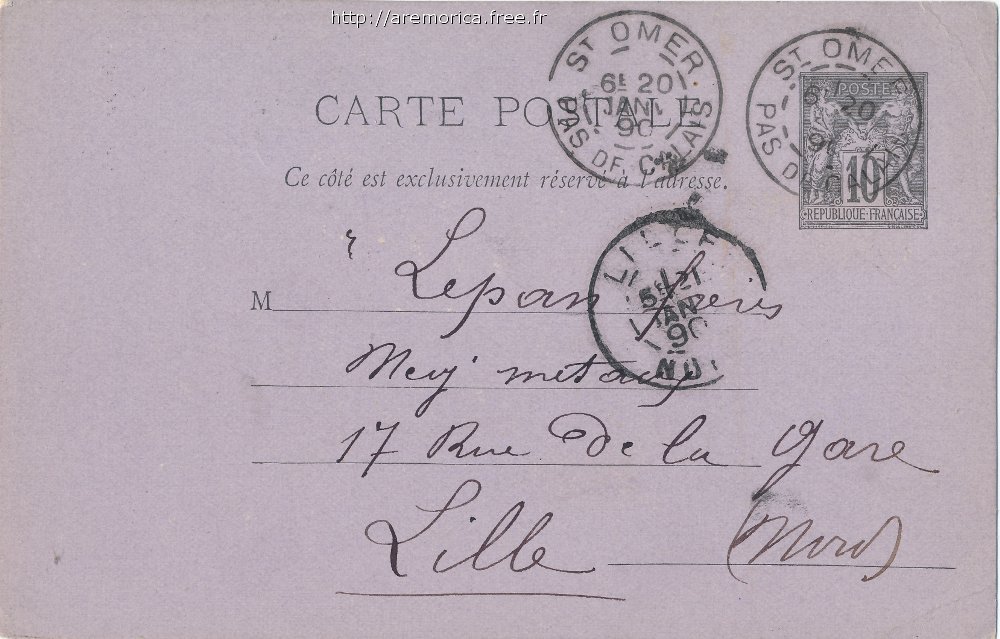 http://aremorica.free.fr
St OMER
6E 20
JANV
90
PAS DE CALAIS
St OMER
20
PAS DE CALAIS
POSTE
10
REPUBLIQUE FRANÇAISE
CARTE POSTALE
Ce côté est exclusivement réservé à l'adresse.
LILLE
5E 21
JANV
90
M Lepan frères
metaux
17 Rue de la gare
Lille (Nord)